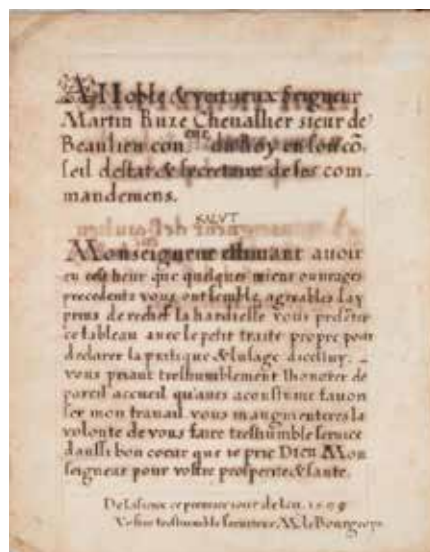 A Noble & vertueux seigneur
Martin Ruze Chevallier sieur de
Beaulieu con.er du Roy en son cõ.
seil destat & secretaire de ses com-
mandemens.
SALVT
Monseigneur estimant auoir
eu cest heur que quelques miens ouurages
precedents vous ont semblé agreables Jay
prins de rechef la hardiesse vous presẽter
ce tableau auec le petit traité propre pour
declarer la pratique & lusage dicelluy.
vous priant treshumblement lhonorer de
pareil accueil qu'aues acoustumé fauori
ser mon trauail. vous m'augmenteres la
volonte de vous faire treshumble seruice
daussi bon coeur que ie prie Dieu Mon
seigneur pour vostre prosperite & sante.
De Lisieux ce premier iour de
Vostre treshumble seruiteur M. le Bourgeoys